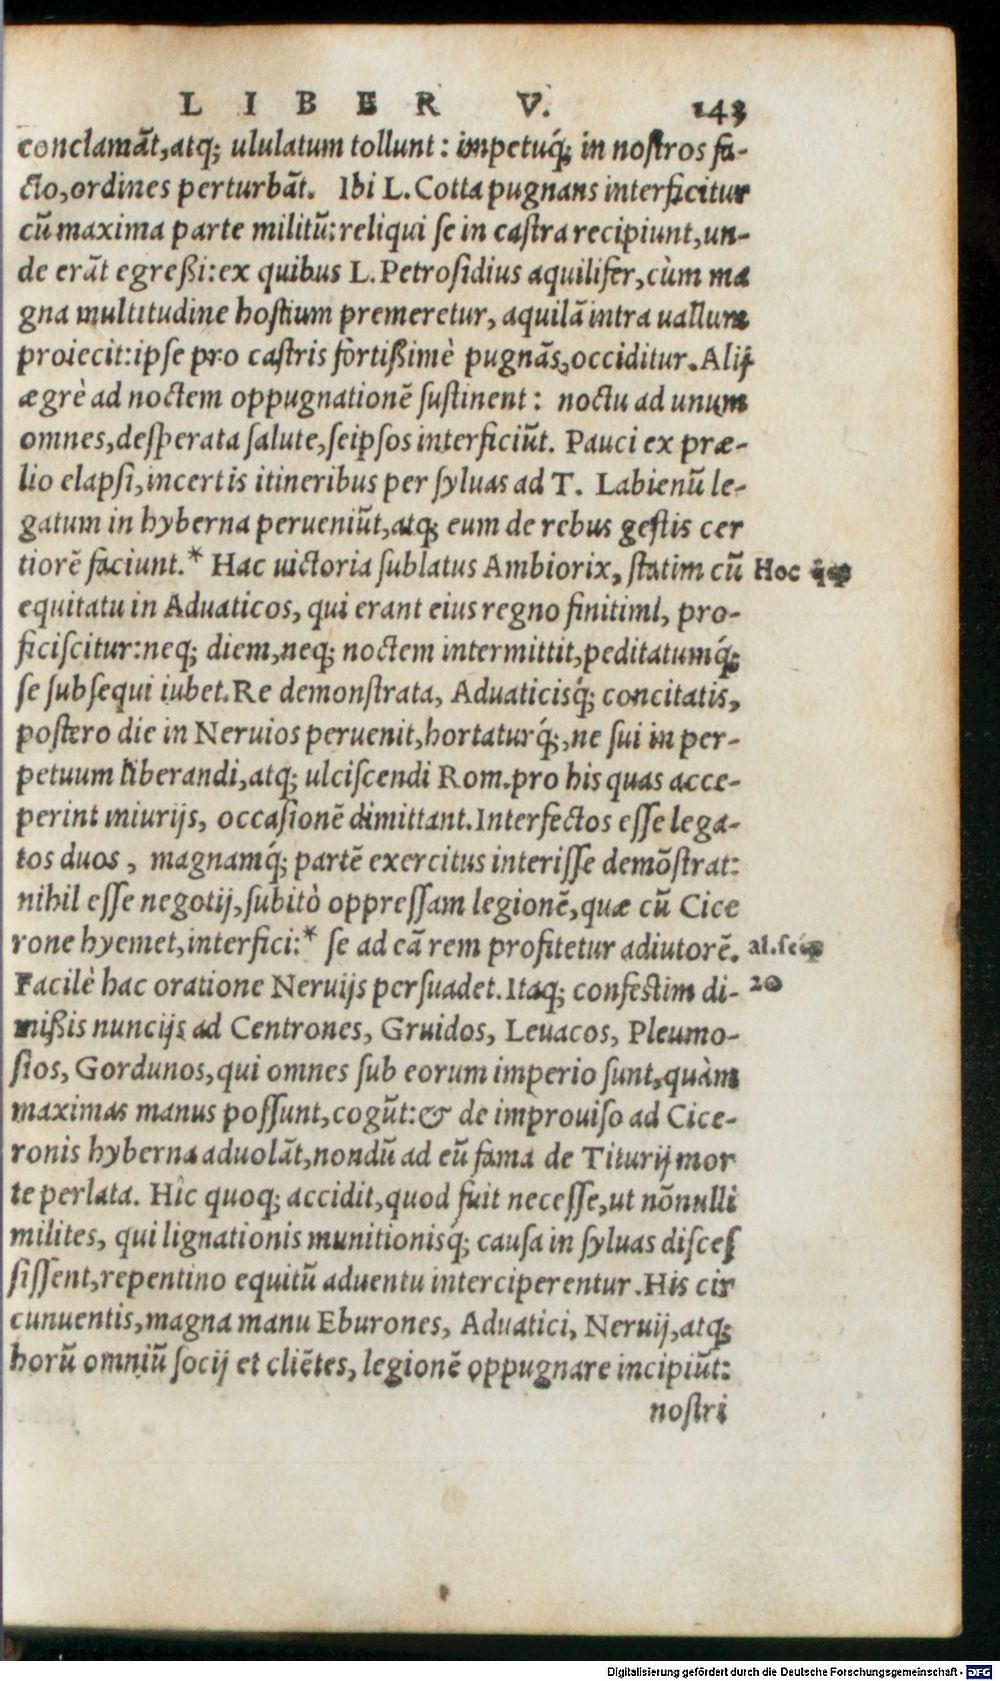 LIBER V. 143
conclamāt,atq; ululatum tollunt: impetuq́; in nostros fa-
cto,ordines perturbāt. Ibi L. Cotta pugnans interficitur
cū maxima parte militū:reliqui se in castra recipiunt,un-
de erāt egreßi:ex quibus L. Petrosidius aquilifer,cùm ma
gna multitudine hostium premeretur, aquilā intra uallum
proiecit:ipse pro castris fortißimè pugnās,occiditur. Alij
ægrè ad noctem oppugnationē sustinent: noctu ad unum
omnes,desperata salute,seipsos interficiūt. Pauci ex præ-
lio elapsi,incertis itineribus per syluas ad T. Labienū le-
gatum in hyberna perueniūt,atq; eum de rebus gestis cer
tiorē faciunt.* Hac uictoria sublatus Ambiorix, statim cū Hoc
equitatu in Aduaticos, qui erant eius regno finitimi, pro-
ficiscitur:neq; diem,neq; noctem intermittit,peditatumq́;
se subsequi iubet. Re demonstrata, Aduaticisq́; concitatis,
postero die in Neruios peruenit,hortaturq́;,ne sui in per-
petuum liberandi,atq; ulciscendi Rom. pro his quas acce-
perint iniurijs, occasionē dimittant. Interfectos esse lega-
tos duos, magnamq́; partē exercitus interisse demōstrat:
nihil esse negotij,subitò oppressam legionē,quæ cū Cice
rone hyemet,interfici:* se ad eā rem profitetur adiutorē. al.
Facilè hac oratione Neruijs persuadet. Itaq; confestim di- 20
mißis nuncijs ad Centrones, Gruidos, Leuacos, Pleumo-
sios, Gordunos,qui omnes sub eorum imperio sunt,quàm
maximas manus possunt,cogūt:& de improuiso ad Cice-
ronis hyberna aduolāt,nondū ad eū fama de Titurij mor
te perlata. Hîc quoq; accidit,quod fuit necesse,ut nōnulli
milites, qui lignationis munitionisq́; causa in syluas disces
sissent,repentino equitū aduentu interciperentur. His cir
cunuentis,magna manu Eburones, Aduatici, Neruij,atq;
horū omniū socij et cliētes, legionē oppugnare incipiūt:
nostri
Digitalisierung gefördert durch die Deutsche Forschungsgemeinschaft - DFG